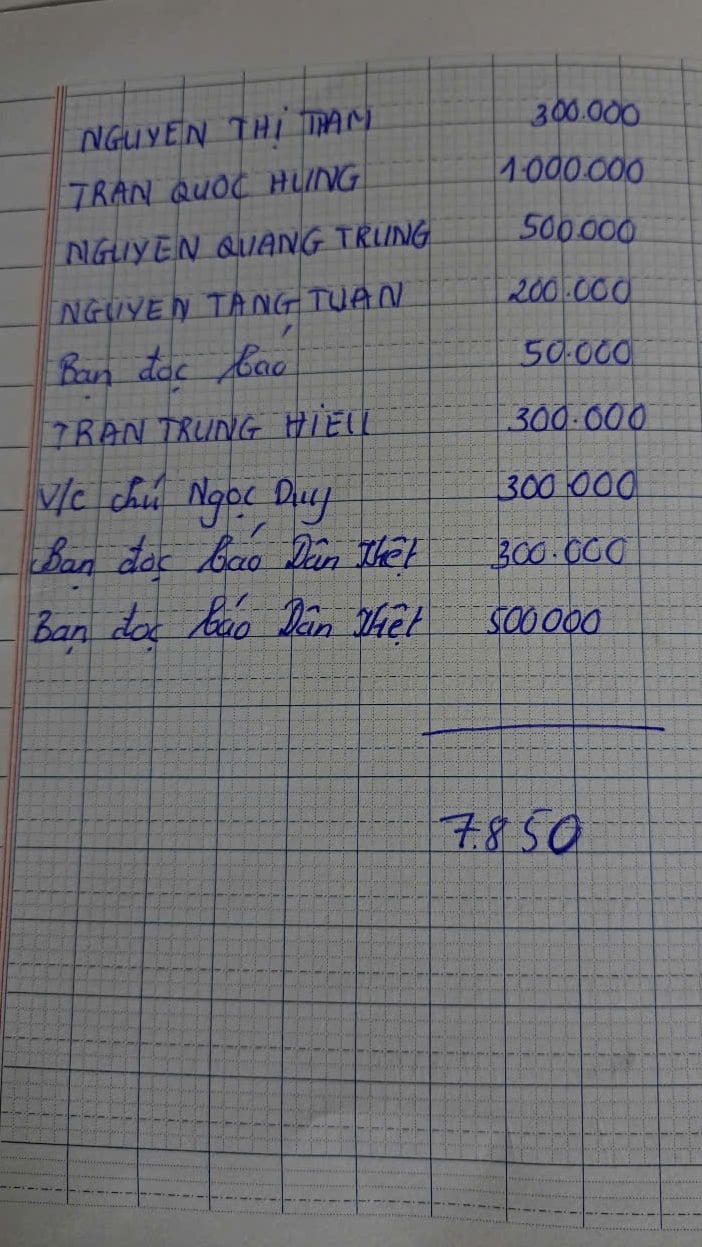 NGUYEN THỊ THAM 300.000
TRAN QUOC HUNG 1.000.000
NGUYEN QUANG TRUNG 500.000
NGUYEN TANG TUAN 200.000
Bạn đọc báo 50.000
TRAN TRUNG HIEU 300.000
V/c chú Ngọc Duy 300.000
Bạn đọc báo Dân Việt 300.000
Bạn đọc báo Dân Việt 500000
7.850